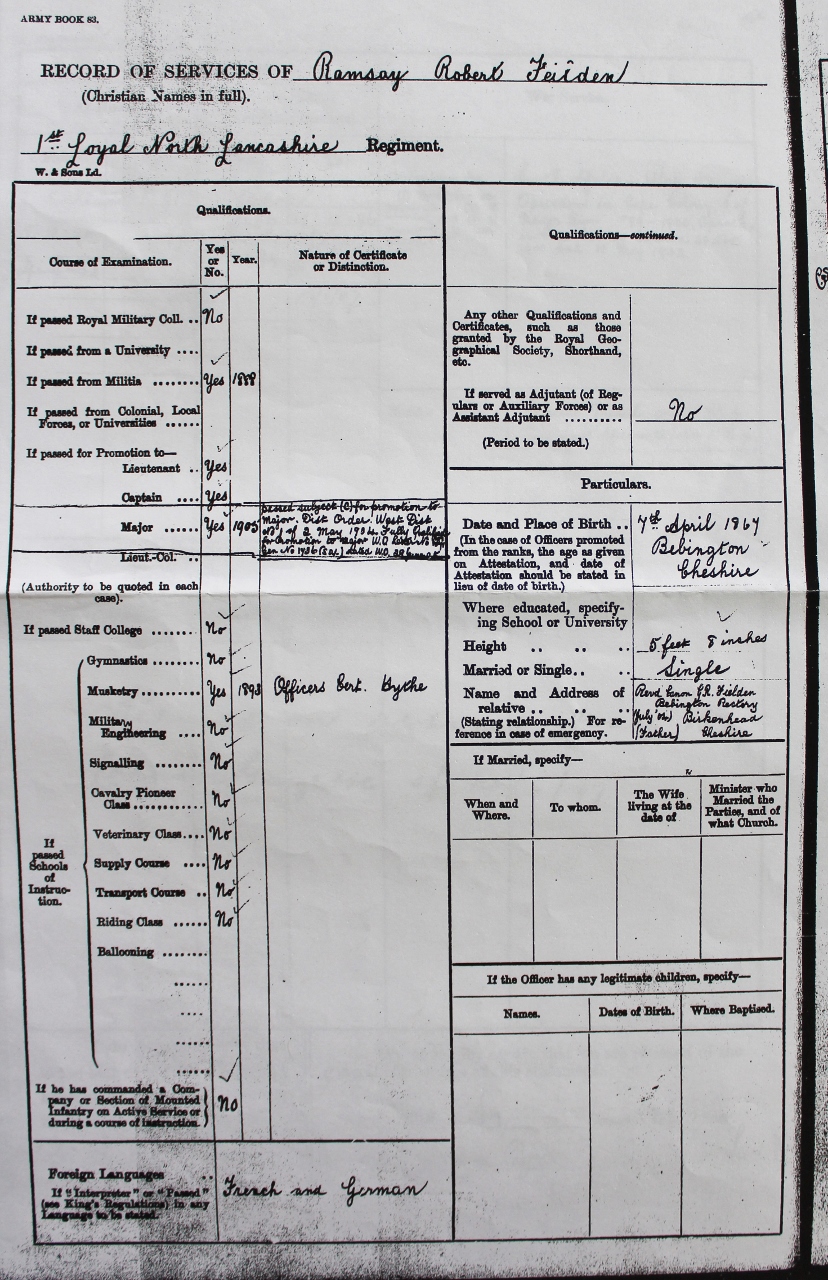 ARMY BOOK 83.
RECORD OF SERVICES OF Ramsay Robert Feilden
(Christian Names in full).
1st Loyal North Lancashire Regiment.
W. & Sons Ld.
Qualifications.
Course of Examination. Yes or No. Year. Nature of Certificate or Distinction.
If passed Royal Military Coll. .. No
If passed from a University ....
If passed from Militia ........ Yes 1888
If passed from Colonial, Local
Forces, or Universities ......
If passed for Promotion to—
Lieutenant .. Yes
Captain .... Yes
Major ...... Yes 1905
passed subject (C) for promotion to
Major. Dist Order. West Dist
No 1 of 2 May 1904. Fully
for promotion to Major W.O.
Lieut.-Col. ..
(Authority to be quoted in each
case).
If passed Staff College ....... No
If
passed
Schools
of
Instruc-
tion.
Gymnastics ........ No
Musketry .......... Yes 1893 Officers Cert. Hythe
Military
Engineering .... No
Signalling ........ No
Cavalry Pioneer
Class ............ No
Veterinary Class.... No
Supply Course .... No
Transport Course .. No
Riding Class ...... No
Ballooning ........
......
....
......
......
If he has commanded a Com-
pany or Section of Mounted
Infantry on Active Service or
during a course of instruction. No
Foreign Languages ..
If "Interpreter" or "Passed"
(see King's Regulations) in any
Language to be stated.
French and German
Qualifications—continued.
Any other Qualifications and
Certificates, such as those
granted by the Royal Geo-
graphical Society, Shorthand,
etc.
If served as Adjutant (of Reg-
ulars or Auxiliary Forces) or as
Assistant Adjutant .......... No
(Period to be stated.)
Particulars.
Date and Place of Birth .. 7th April 1867
Bebington
Cheshire
(In the case of Officers promoted
from the ranks, the age as given
on Attestation, and date of
Attestation should be stated in
lieu of date of birth.)
Where educated, specify-
ing School or University
Height .. .. .. 5 feet 8 inches
Married or Single.. .. Single
Name and Address of
relative .. .. ..
(Stating relationship.) For re-
ference in case of emergency.
Revd Canon G.R. Feilden
Bebington Rectory
Birkenhead
(Father) Cheshire
If Married, specify—
When and
Where.
To whom.
The Wife
living at the
date of
Minister who
Married the
Parties, and of
what Church.
If the Officer has any legitimate children, specify—
Names. Dates of Birth. Where Baptised.